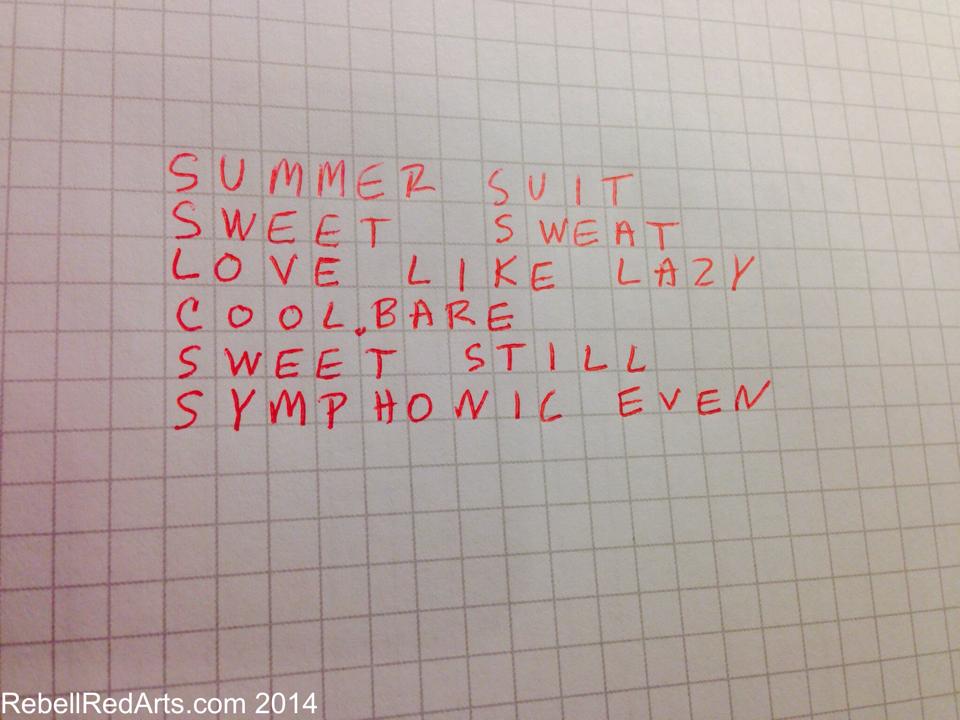 SUMMER SUIT
SWEET SWEAT
LOVE LIKE LAZY
COOL.BARE
SWEET STILL
SYMPHONIC EVEN
RebellRedArts.com 2014